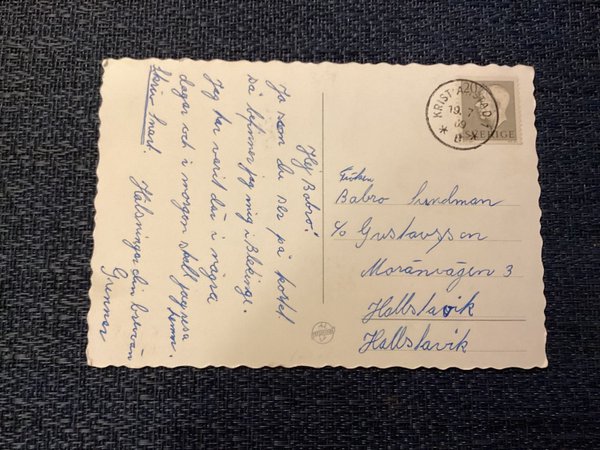 Hej Babro!
Ja som du ser på kortet
så befinner jag mig i Blekinge.
Jag har varit där i några
dagar och i morgon skall jag resa
hemm.
Skriv Snart.
Hälsningar din brevvän
KRISTIANSTAD 1
19 7
20
SVERIGE
Fröken
Babro Sundman
c/o Gustavsson
Moränvägen 3
Hallstavik
Hallstavik